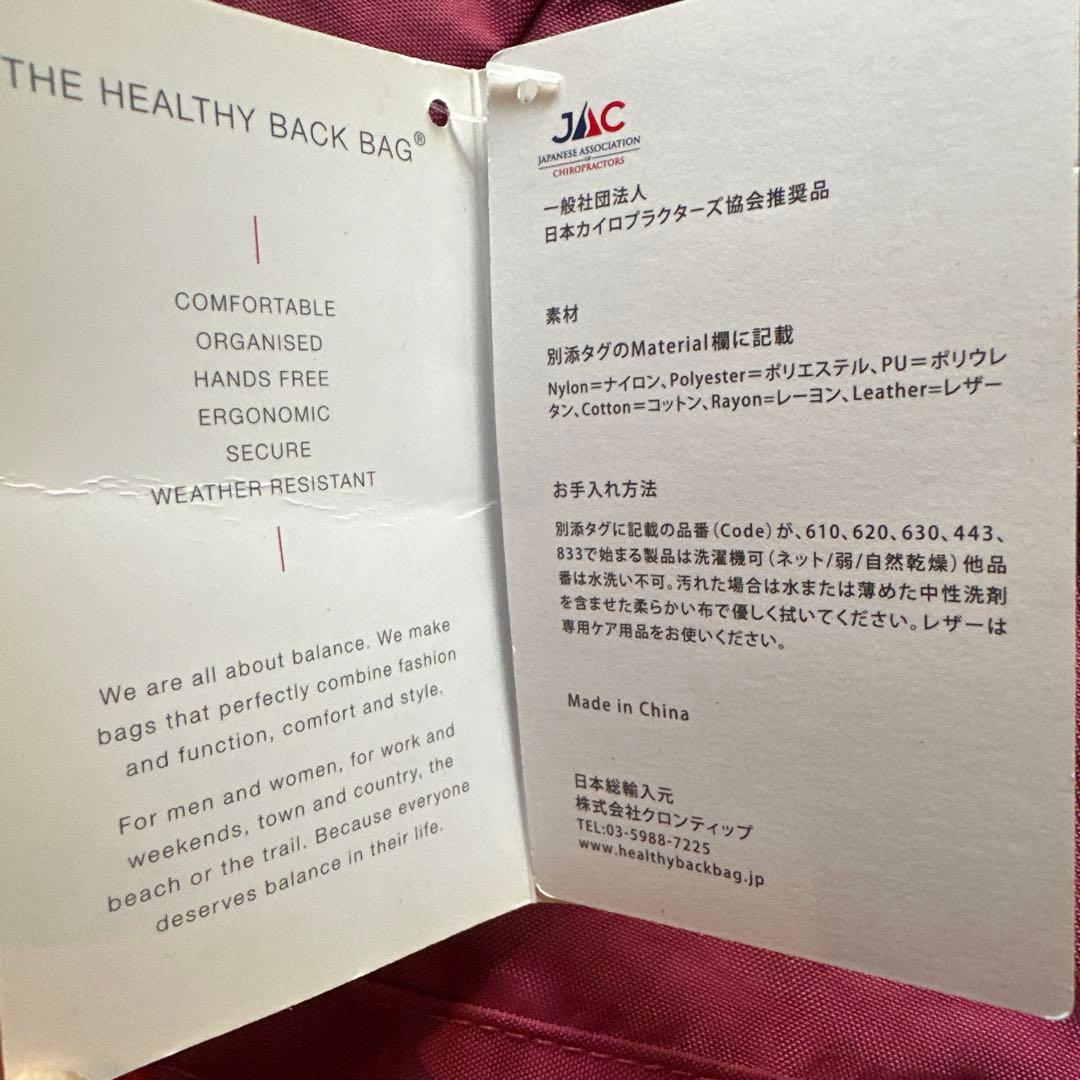 THE HEALTHY BACK BAG®
COMFORTABLE
ORGANISED
HANDS FREE
ERGONOMIC
SECURE
WEATHER RESISTANT
We are all about balance. We make
bags that perfectly combine fashion
and function, comfort and style.
For men and women, for work and
weekends, town and country, the
beach or the trail. Because everyone
deserves balance in their life.
JAC
JAPANESE ASSOCIATION
OF
CHIROPRACTORS
一般社団法人
日本カイロプラクターズ協会推奨品
素材
別添タグのMaterial欄に記載
Nylon=ナイロン、Polyester=ポリエステル、PU=ポリウレ
タン、Cotton=コットン、Rayon=レーヨン、Leather=レザー
お手入れ方法
別添タグに記載の品番(Code)が、610、620、630、443、
833で始まる製品は洗濯機可(ネット/弱/自然乾燥)他品
番は水洗い不可。汚れた場合は水または薄めた中性洗剤
を含ませた柔らかい布で優しく拭いてください。レザーは
専用ケア用品をお使いください。
Made in China
日本総輸入元
株式会社クロンティップ
TEL:03-5988-7225
www.healthybackbag.jp